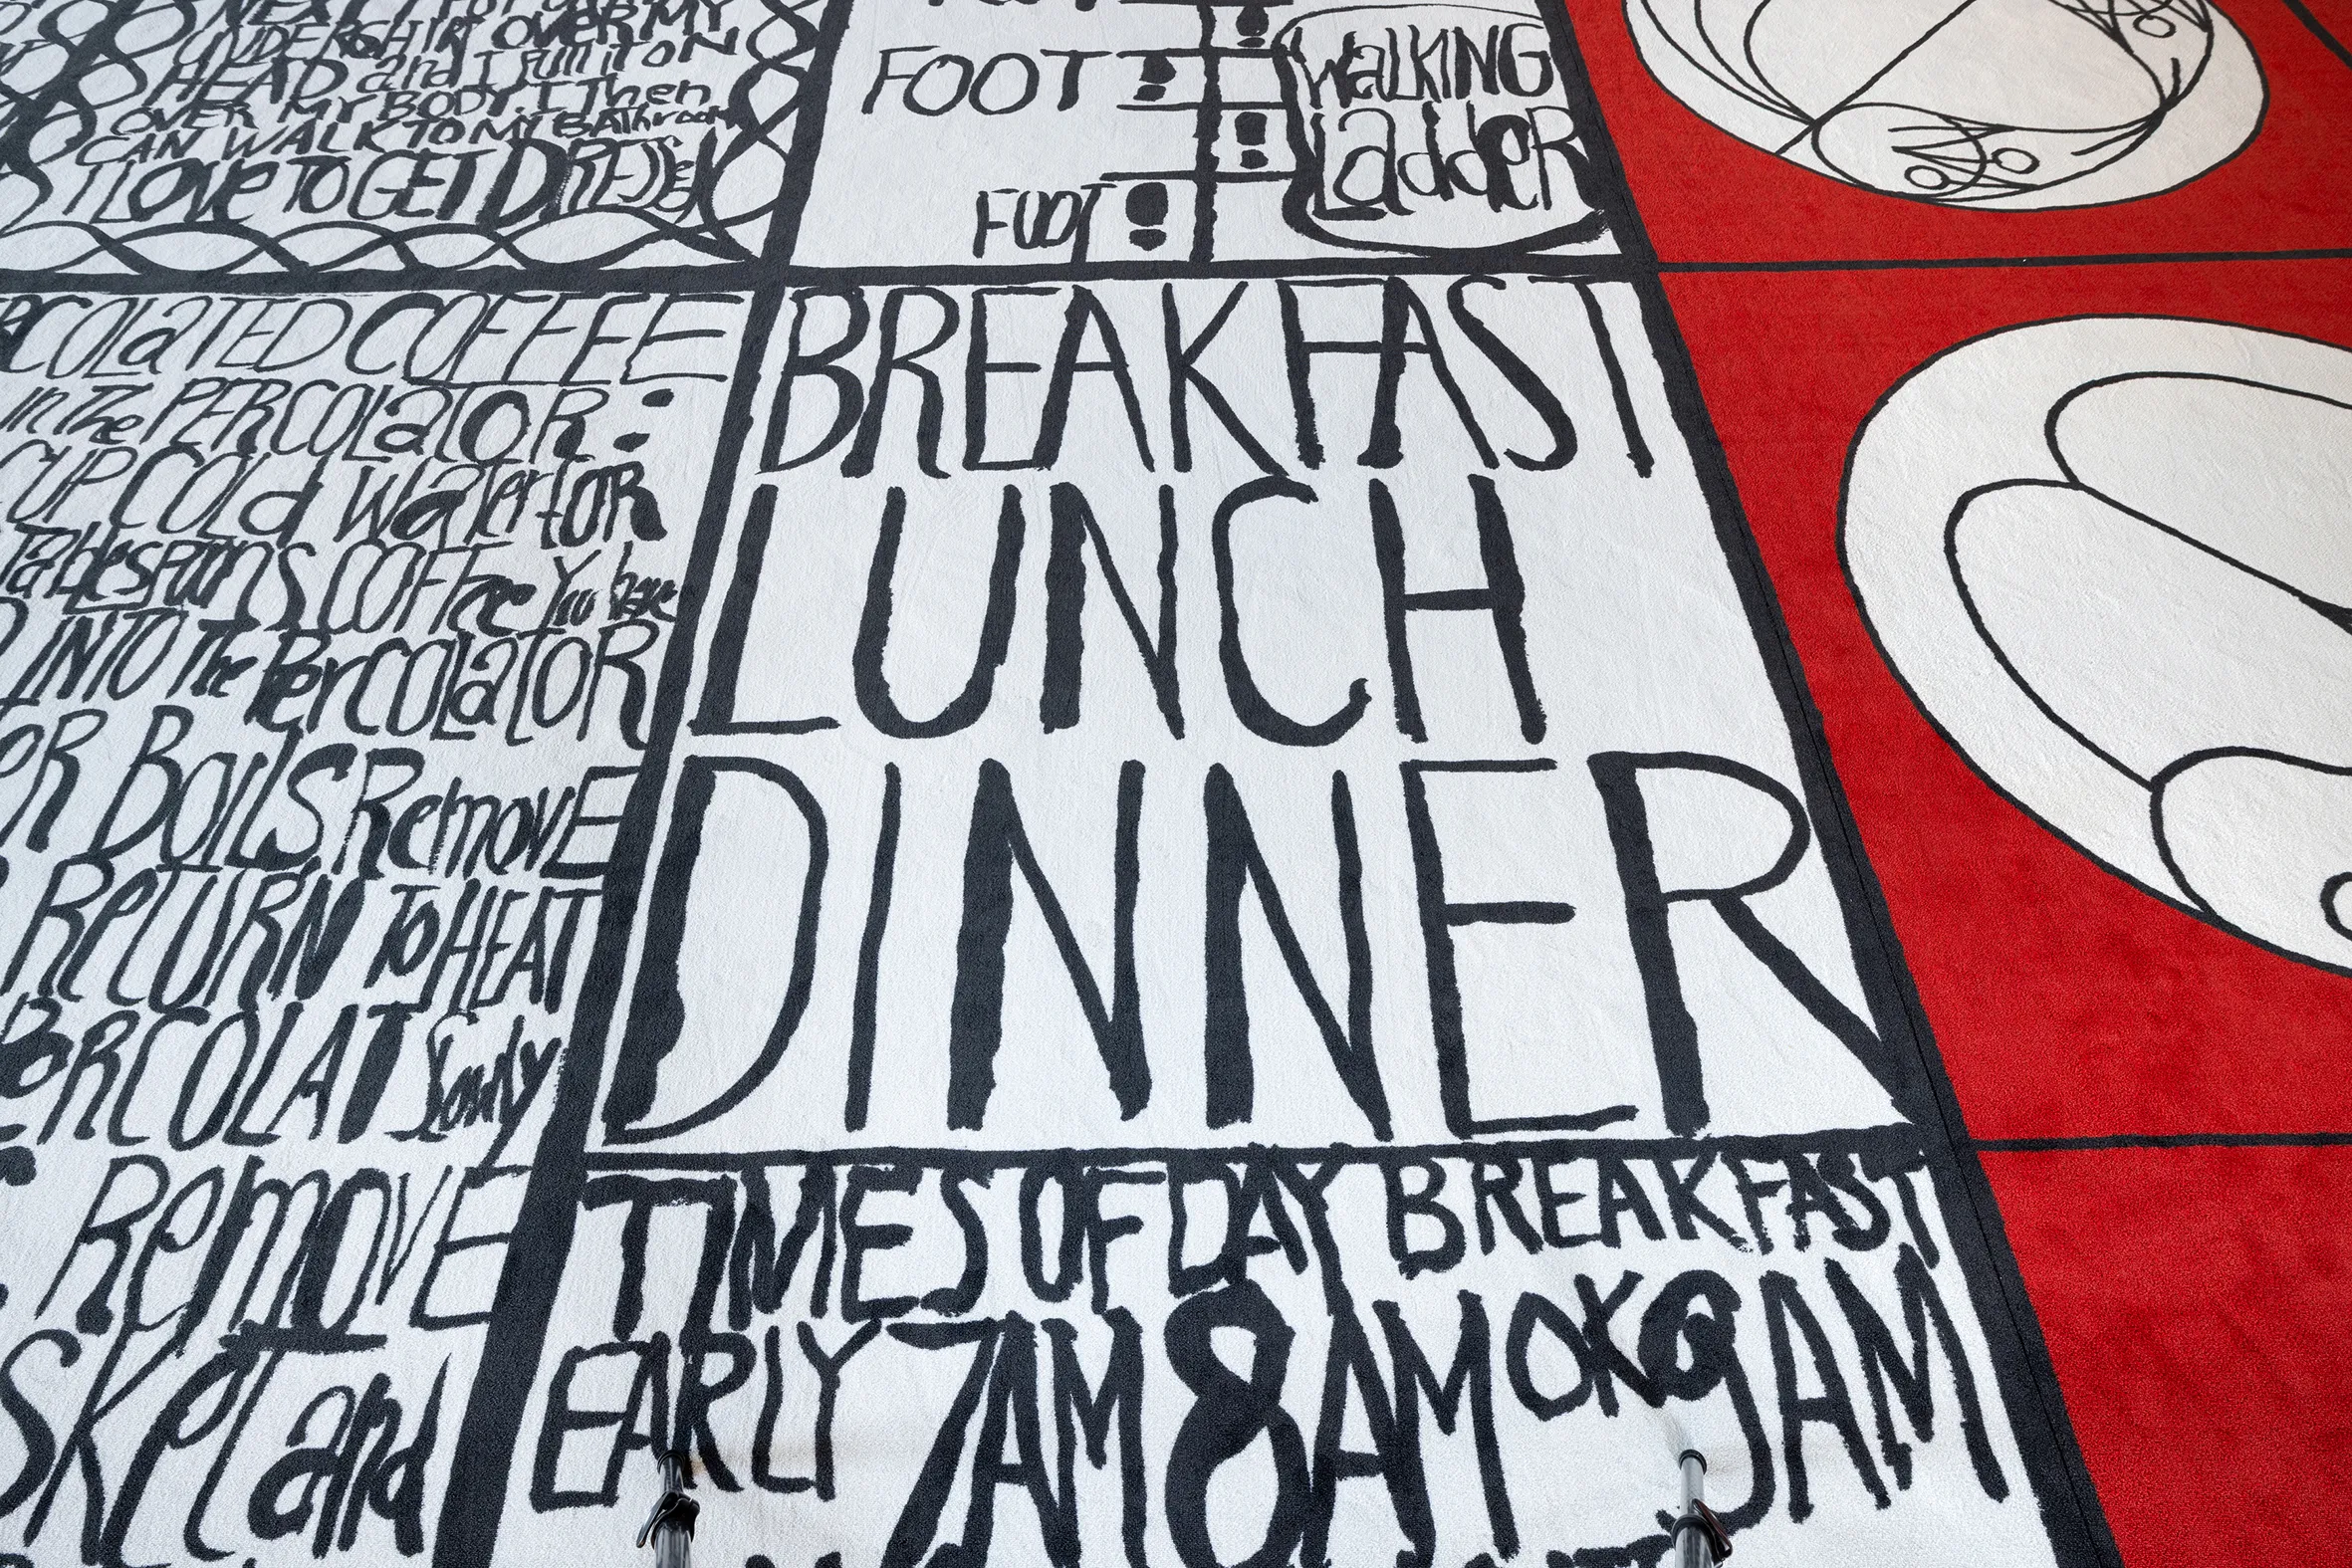 NEXT I PUT
UNDERSHIRT OVER MY
HEAD and I PUll iT ON
OVER MY BODY. I Then
CAN WALK TO MY BAThroom
I LOVE TO GET DRESSEd
FOOT
FOOT
WalKING
LaddeR
COLaTED COFFEE
in The PERCOLaTOR:
CUP COLd WaTer foR
TablespoonS COFFee You have
INTO The PerCOLaTOR
OR BoilS RemovE
ReTURN To HEAT
PeRCOLAT Slowly
RemovE
SKeT and
BREAKFAST
LUNCH
DINNER
TIMES OF DAY BREAKFAST
EARLY 7AM 8AM OK 9AM